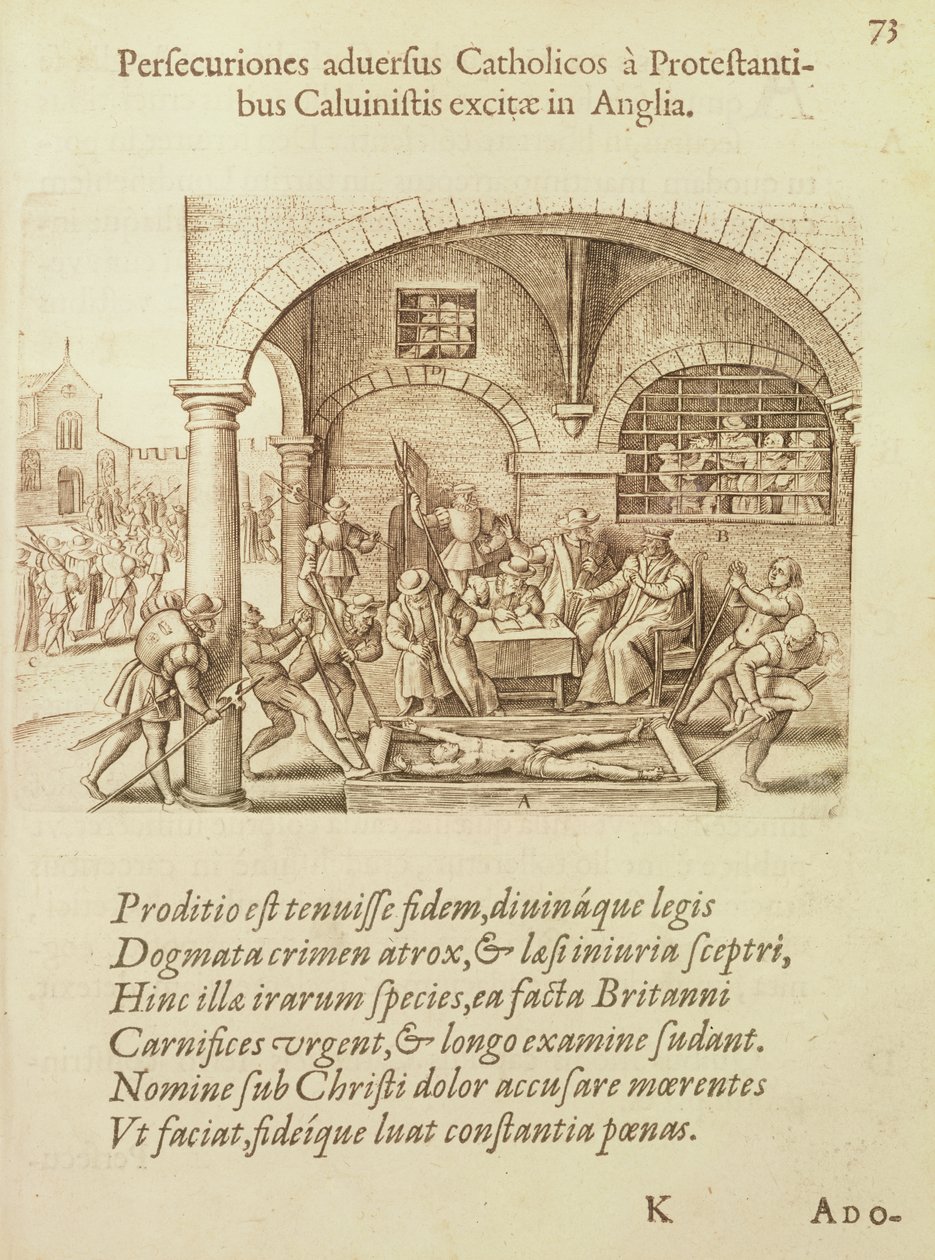 73
Perſecuriones aduerſus Catholicos à Proteſtanti-
bus Caluiniſtis excitæ in Anglia.
D
B
C
A
Proditio eſt tenuiſſe fidem, diuináque legis
Dogmata crimen atrox, & læſi iniuria ſceptri,
Hinc illæ irarum ſpecies, ea facta Britanni
Carnifices vrgent, & longo examine ſudant.
Nomine ſub Chriſti dolor accuſare mœrentes
Vt faciat, fideíque luat conſtantia pœnas.
K ADO-